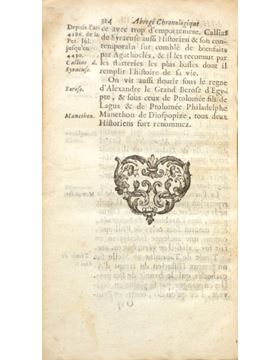 324 Abregé Chronologique
Depuis l'an
4186. de la
Per. Jul.
jusqu'en
4490.
Callias de
Syracuse.
Berose.
Manethon.
ce avec trop d'emportement. Callias
de Syracuse aussi Historien & son con-
temporain fut comblé de bienfaits
par Agathoclés, & il les reconnut par
les flatteries les plus basses dont il
remplit l'histoire de sa vie.
On vit aussi fleurir sous le regne
d'Alexandre le Grand Berose d'Egy-
pte, & sous ceux de Ptolomée fils de
Lagus & de Ptolomée Philadelphe
Manethon de Diospopize, tous deux
Historiens fort renommez.